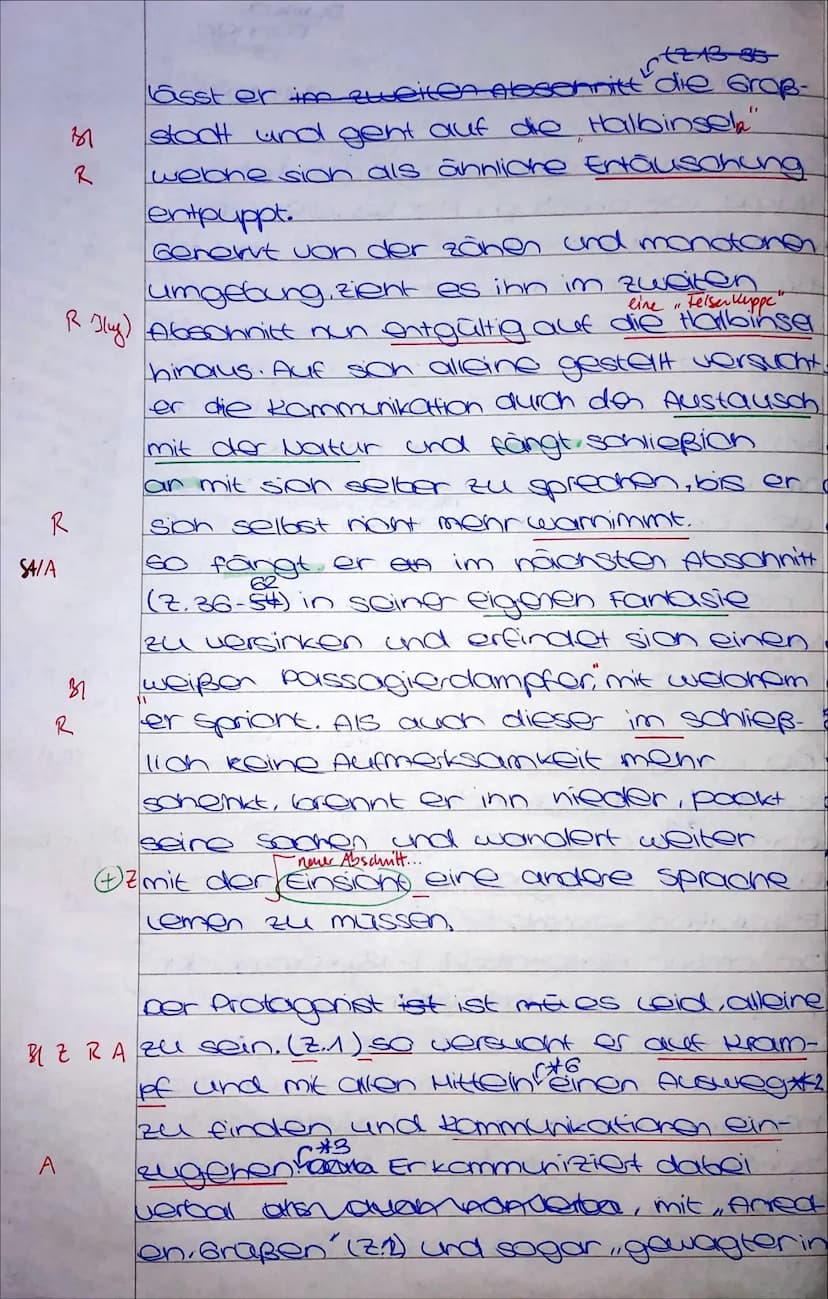 (Z 13-35
lässt er im zweiten Abschnitt die Groß-
Bl stadt und geht auf die „Halbinseln"
R welche sich als ähnliche Entäuschung
entpuppt.
Genervt von der zähen und monotonen
Umgebung, zieht es ihn im zweiten
eine „Felsenkuppe"
R I(ug) Abschnitt nun entgültig auf die Halbinsel
hinaus. Auf sich alleine gestellt versucht
er die Kommunikation durch den Austausch
mit der Natur und fängt schießlich
an mit sich selber zu sprechen, bis er
R sich selbst nicht mehr warnimmt.
St/A so fängt er an im nächsten Abschnitt
62
(Z. 36-54) in seiner eigenen Fantasie
zu versinken und erfindet sich einen
Bl weißen Passagierdampfer", mit welchem
R er spricht. Als auch dieser im schieß-
lich keine Aufmerksamkeit mehr
schenkt, brennt er ihn nieder, packt
seine Sachen und wandert weiter
neuer Abschnitt...
(+) Z mit der Einsicht eine andere Sprache
lernen zu müssen.
Der Protagonist ist ist es Leid, alleine
Bl Z R A zu sein. (Z.1) so versucht er auf Kram-
*6
pf und mit allen Mitteln einen Ausweg *2
zu finden und Kommunikationen ein-
*3
A zugehen. Er kommuniziert dabei
verbal, mit „Arred-
en, Grüßen" (Z.2) und sogar „gewagter in